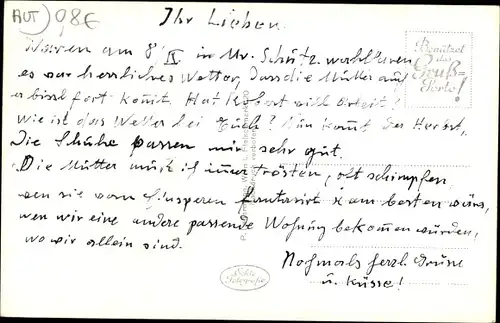 AUT 0,98€
Ihr Lieben.
Waren am 8' IX in Mr. Schütz. wahlfaren
es war herrliches Wetter, dass die Mutter auch
er bissl fort kommt. Hat Robert viel Arbeit?
Wie ist das Wetter bei Euch? Nun kommt der Herbst,
Die Schuhe passen mir sehr gut.
Die Mutter muß ich immer trösten, oft schimpfen
wen sie vom
am besten wäre,
wen wir eine andere passende Wohnung bekommen würden,
wo wir allein sind.
Nochmals herzl. Grüsse
u. Küsse!
Benützet
die
Gruß-
Porto!
Echte
Fotografie